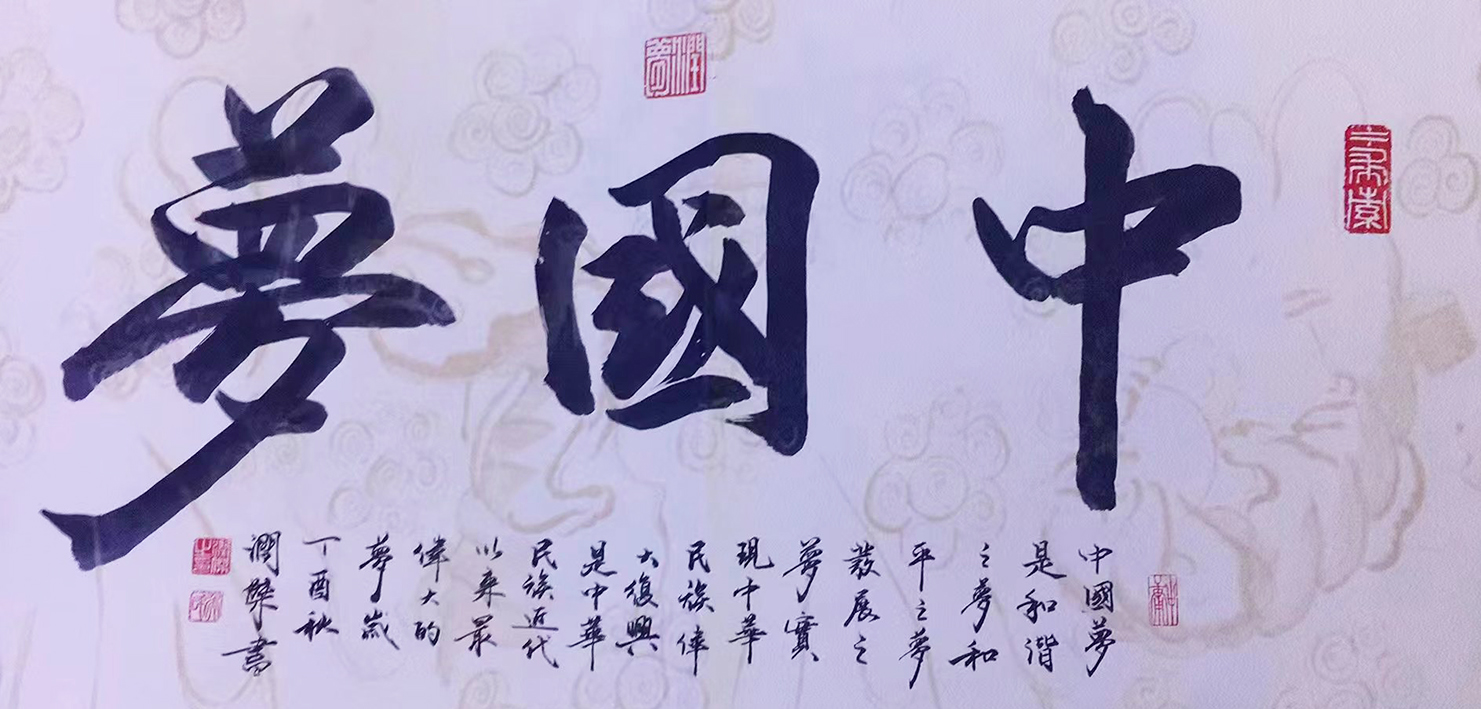 中國夢
中國夢
是和谐
之夢和
平之夢
發展之
夢實
現中華
民族偉
大復興
是中華
民族近代
以来最
偉大的
夢歲
丁酉秋
潤書